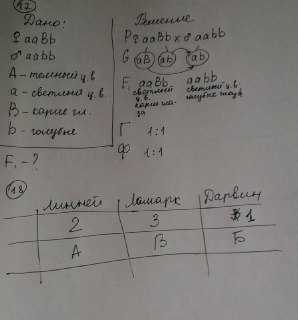 17
Дано:
♀ aaBb
♂ aabb
А - темный ц.в.
а - светлый ц.в.
В - карие гл.
b - голубые
F₁ - ?
Решение
P ♀ aaBb × ♂ aabb
G aB ab ab
F₁ aaBb aabb
светлый ц.в. карие глаза
светлый ц.в. голубые глаза
Г 1:1
Ф 1:1
18
Линней Ламарк Дарвин
2 3 1
А В Б